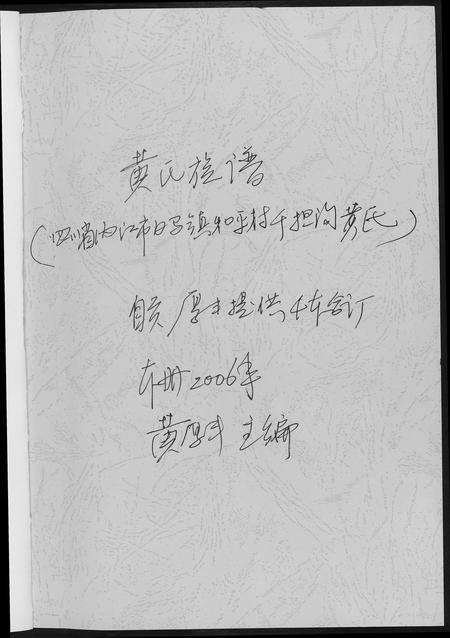 黄氏族谱
(四川省内江市白马镇和平村千担沟黄氏)
自贡 厚丰提供4本合订
本册2006年
黄厚丰 主编